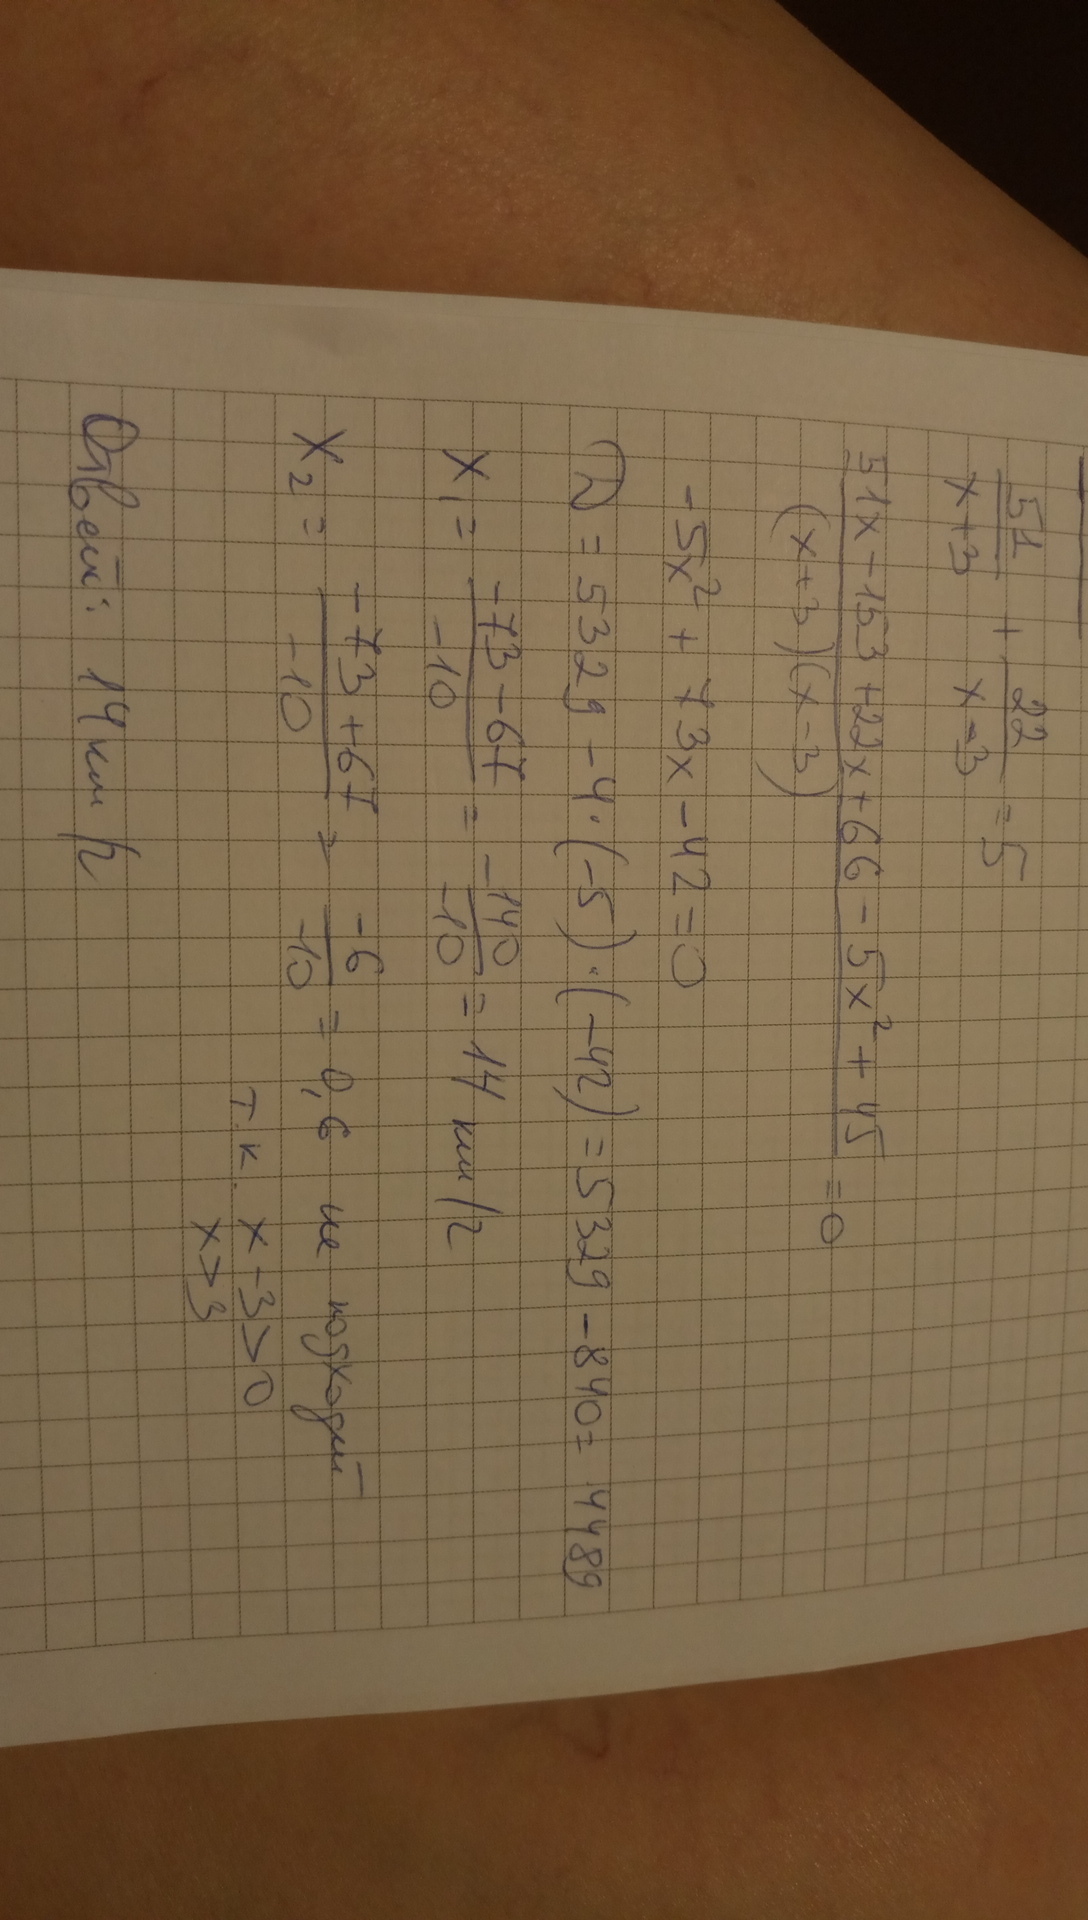 51/(x+3) + 22/(x-3) = 5
(51x - 153 + 22x + 66 - 5x² + 45)/((x+3)(x-3)) = 0
-5x² + 73x - 42 = 0
D = 5329 - 4·(-5)·(-42) = 5329 - 840 = 4489
x₁ = (-73-67)/(-10) = (-140)/(-10) = 14 км/ч
x₂ = (-73+67)/(-10) = (-6)/(-10) = 0,6 не подходит
т.к. x-3>0
x>3
Ответ: 14 км/ч